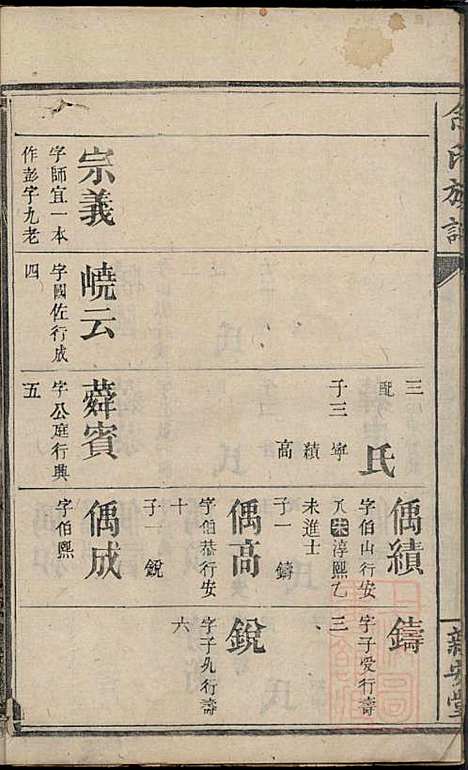 宗義
字師宜一本
作彭字九老
嶢云
字國佐行成
四
蕣賓
字公庭行典
五
三
配 氏
子三 寧
績
高
偊績
字伯山行安
八宋淳熙乙
未進士
子一 鑄
偊高
字伯恭行安
十
子一 銳
偊成
字伯熙
鑄
字子愛行壽
三
銳
字子
行壽
六
氏族譜
新安堂